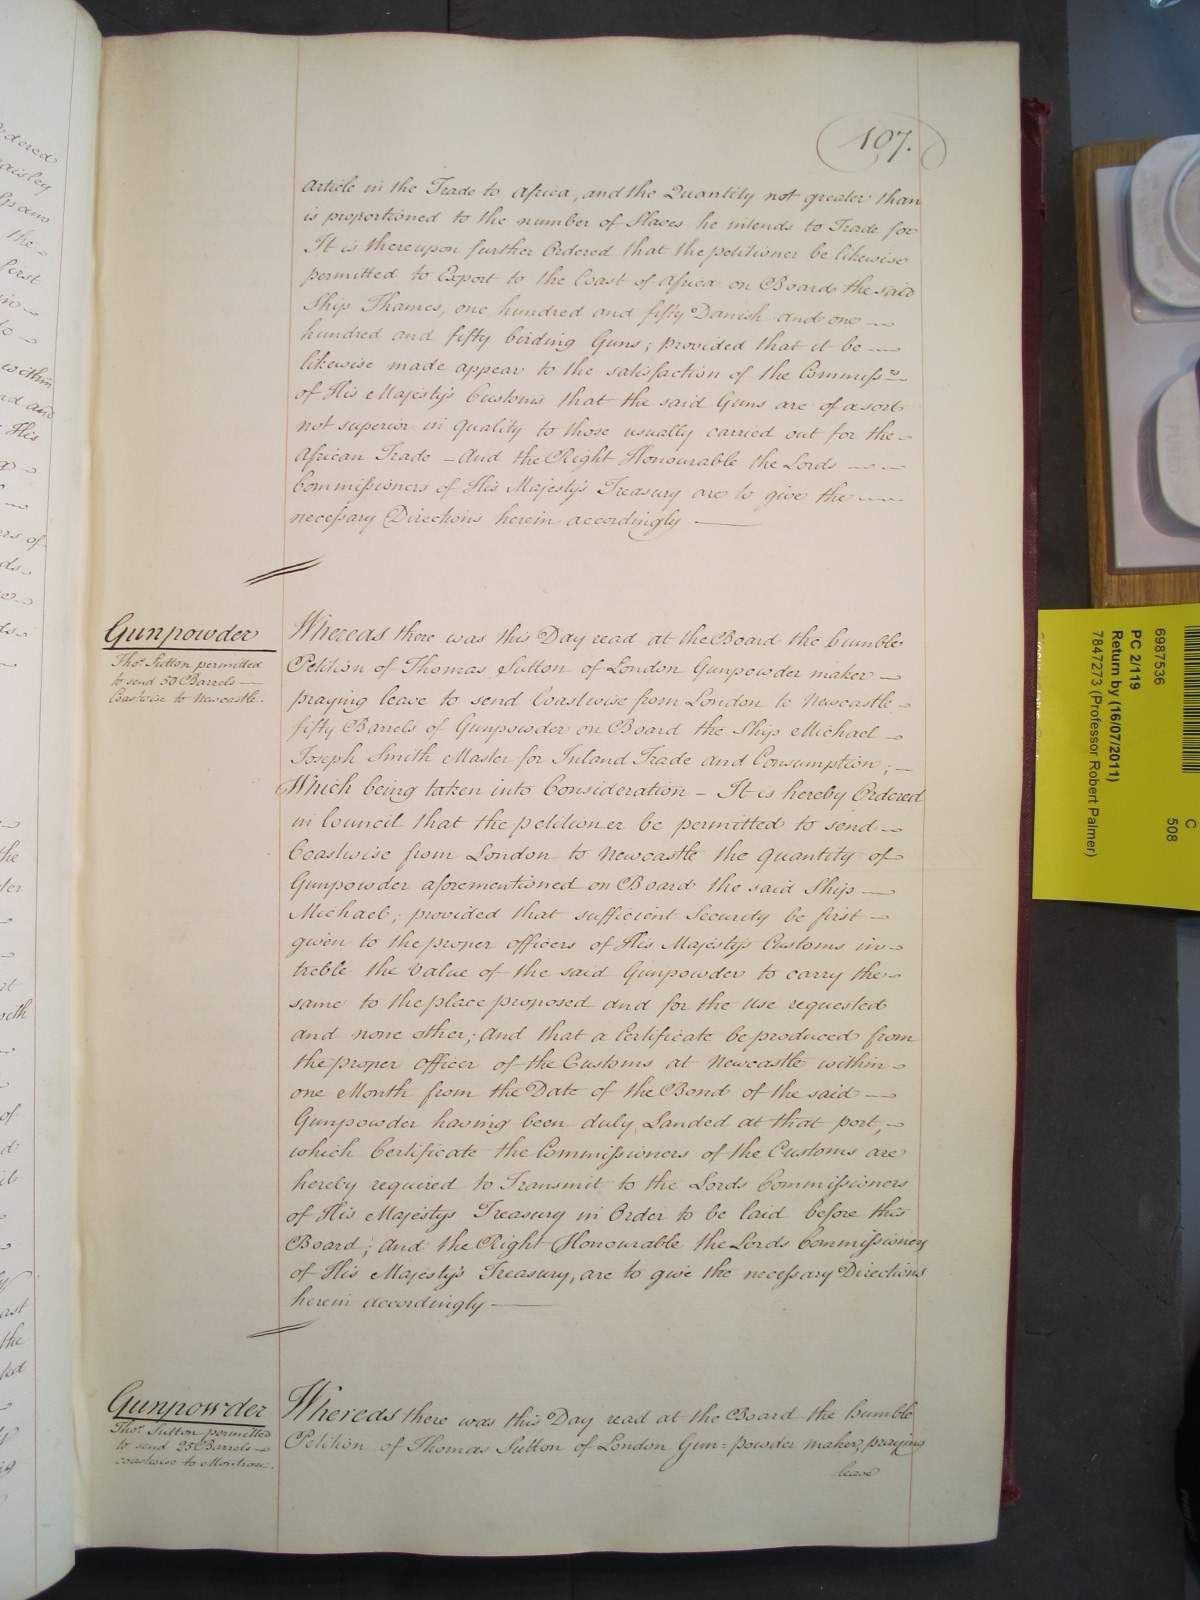 107.
Article in the Trade to Africa, and the Quantity not greater than
is proportioned to the number of Slaves he intends to Trade for
It is thereupon further Ordered that the petitioner be likewise
permitted to Export to the Coast of Africa on Board the said
Ship Thames, one hundred and fifty Danish and one
hundred and fifty birding Guns; provided that it be
likewise made appear to the satisfaction of the Commissrs
of His Majesty's Customs that the said Guns are of a sort
not superior in quality to those usually carried out for the
African Trade – And the Right Honourable the Lords
Commissioners of His Majesty's Treasury are to give the
necessary Directions herein accordingly
Gunpowder
Thos. Sutton permitted
to send 50 Barrels
Coastwise to Newcastle.
Whereas there was this Day read at the Board the humble
Petition of Thomas Sutton of London Gunpowder maker
praying leave to send Coastwise from London to Newcastle
fifty Barrels of Gunpowder on Board the Ship Michael
Joseph Smith Master for Inland Trade and Consumption;
Which being taken into Consideration – It is hereby Ordered
in Council that the petitioner be permitted to send
Coastwise from London to Newcastle the quantity of
Gunpowder aforementioned on Board the said Ship
Michael; provided that sufficient Security be first
given to the proper officers of His Majesty's Customs in
treble the Value of the said Gunpowder to carry the
same to the place proposed and for the Use requested
and none other; and that a Certificate be produced from
the proper Officer of the Customs at Newcastle within
one Month from the Date of the Bond of the said
Gunpowder having been duly Landed at that port,
which Certificate the Commissioners of the Customs are
hereby required to Transmit to the Lords Commissioners
of His Majestys Treasury in Order to be laid before this
Board; And the Right Honourable the Lords Commissioners
of His Majesty's Treasury, are to give the necessary Directions
herein accordingly
Gunpowder
Thos. Sutton permitted
to send 25 Barrels
coastwise to Montrose.
Whereas there was this Day read at the Board the humble
Petition of Thomas Sutton of London Gun=powder maker, praying
leave
6987536
PC 2/119
Return by (16/07/2011)
7847273 (Professor Robert Palmer)
C
508